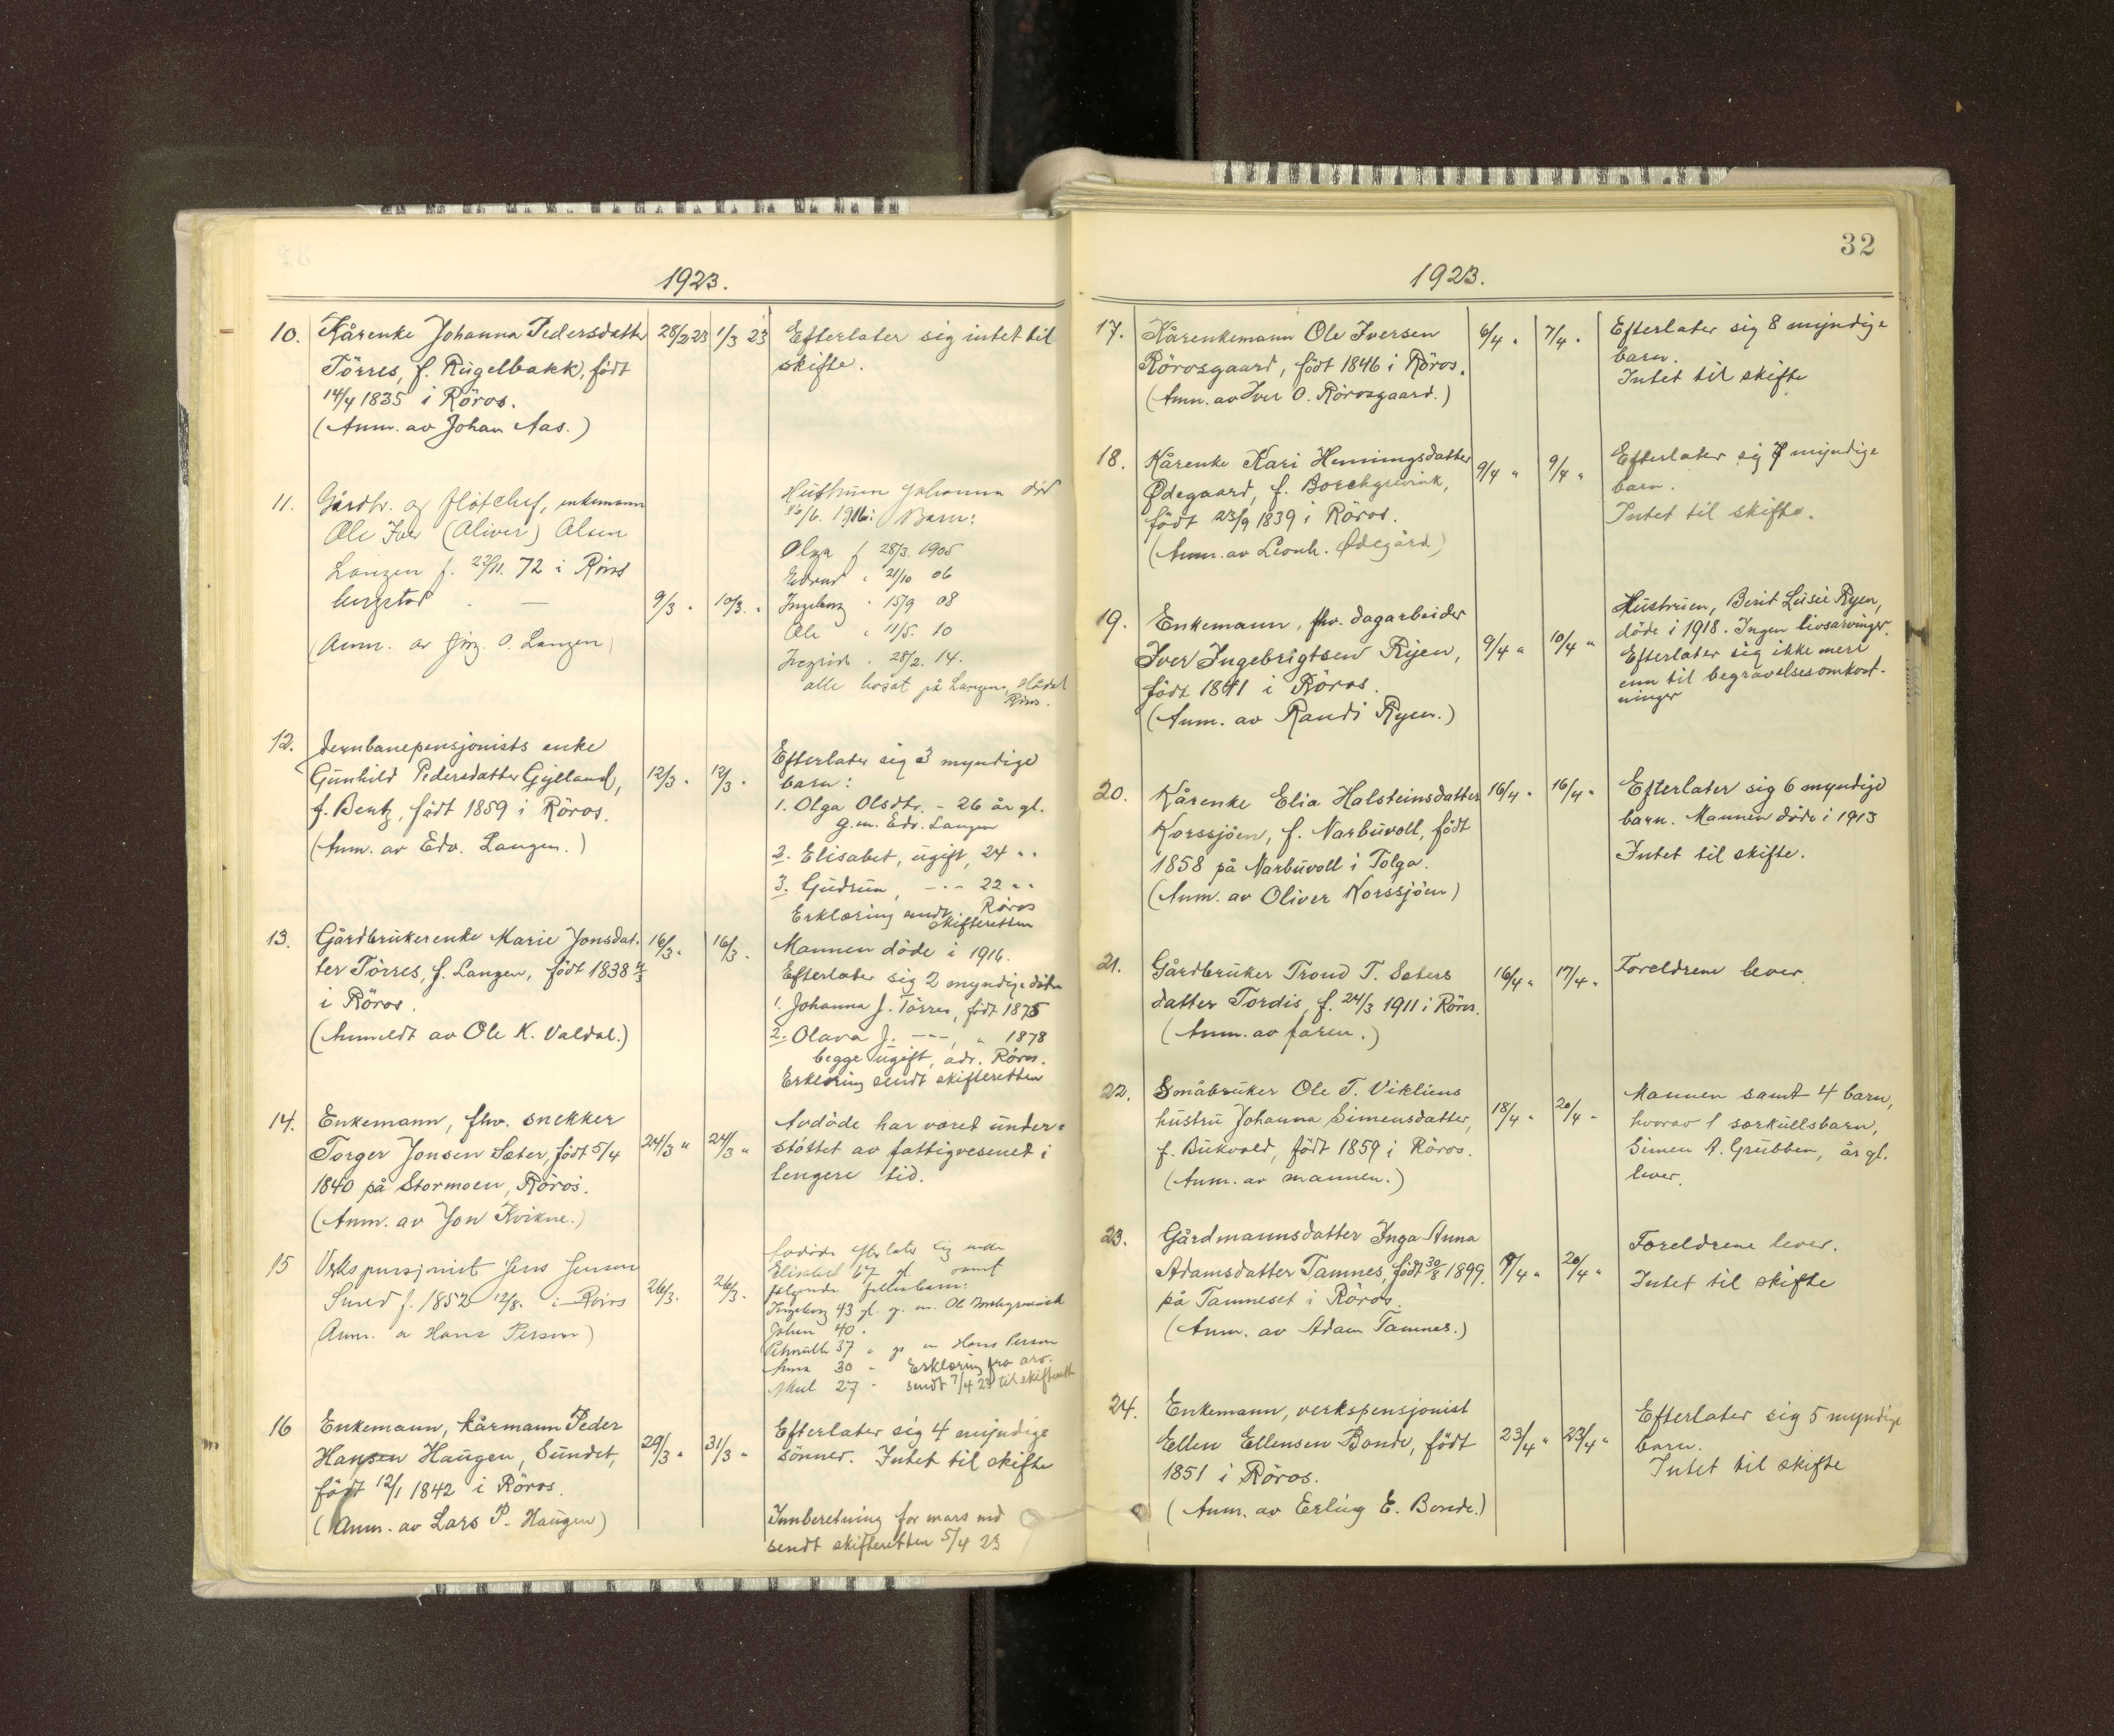 1923.
10. Kårenke Johanna Pedersdatter 28/2 23 1/3 23 Efterlater sig intet til
Törres, f. Rugelbakk, född skifte.
14/4 1835 i Röros.
(Anm. av Johan Aas.)
11. Gårdbr. og enkemann Hustruen Johanna död
Ole Iver (Oliver) Olsen /6. 1916: Barn:
Langen f. 72 i Röros Olga f 28/3. 1905
" 21/10 06
9/3 " 10/3. " Ingeborg " 15/9 08
Ole " 11/5. 10
(Anm. av O. Langen) Ingrid " 28/2. 14.
alle bosat på Langen,
Röros.
12. Jernbanepensjonists enke Efterlater sig 3 myndige
Gunhild Pedersdatter Gylland, 12/3 " 12/3 " barn:
f. Bentz, född 1859 i Röros. 1. Olga Olsdtr. - 26 år gl.
g.m. Edv. Langen
(Anm. av Edv. Langen.) 2. Elisabet, ugift, 24 " "
3. Gudrun, - " - 22 " "
Erklæring sendt Röros
skifteretten
13. Gårdbrukerenke Marie Jonsdat- 16/3 " 16/3 " Mannen döde i 1916.
ter Törres, f. Langen, född 1838 Efterlater sig 2 myndige dötre
i Röros. 1. Johanna J. Törres, född 1875
(Anmeldt av Ole K. Valdal.) 2. Olava J. - " - , " 1878
begge ugift, adr. Röros.
Erklæring sendt skifteretten
14. Enkemann, fhv. snekker Avdöde har været under-
Torger Jonsen Sæter, född 5/4 24/3 " 24/3 " støttet av fattigvesenet i
1840 på Stormoen, Röros. lengere tid.
(Anm. av Jon Kvikne.)
15 Verkspensjonist Jens Jensen Avdöde efterlater sig enke
Elisabet 67 gl. samt
Smed f. 1852 12/8. i Röros 26/3. 26/3. følgende fellesbarn:
Ingeborg 43 gl. g. m. Ole Borchgrevink
(Anm. a Hans Person) Johan 40 "
37 " g. m Hans Person
Anna 30 " Erklæring fra arv.
27 " sendt 7/4 23 til skifterett
16 Enkemann, kårmann Peder Efterlater sig 4 myndige
Hansen Haugen, Sundet, 29/3 " 31/3 " sönner. Intet til skifte
född 12/1 1842 i Röros.
(Anm. av Lars P. Haugen) Innberetning for mars md
sendt skifteretten 5/4 23
32
1923.
17. Kårenkemann Ole Iversen 6/4 " 7/4 " Efterlater sig 8 myndige
Rörosgaard, född 1846 i Röros. barn.
(Anm. av Iver O. Rörosgaard.) Intet til skifte
18. Kårenke Kari Henningsdatter 9/4 " 9/4 " Efterlater sig 7 myndige
Ødegaard, f. Borchgrevink, barn.
född 23/9 1839 i Röros. Intet til skifte.
(Anm. av Leonh. Ødegård)
19. Enkemann, fhv. dagarbeider Hustruen, Berit Lusie Ryen,
Iver Ingebrigtsen Ryen, 9/4 " 10/4 " döde i 1918. Ingen livsarvinger.
född 1841 i Röros. Efterlater sig ikke mere
(Anm. av Randi Ryen.) enn til begravelsesomkost-
ninger
20. Kårenke Elia Halsteinsdatter 16/4 " 16/4 " Efterlater sig 6 myndige
Korssjöen, f. Narbuvoll, född barn. Mannen döde i 1913
1858 på Narbuvoll i Tolga. Intet til skifte.
(Anm. av Oliver Korssjöen)
21. Gårdbruker Trond T. Sæters 16/4 " 17/4 " Foreldrene lever.
datter Tordis, f. 24/3 1911 i Röros.
(Anm. av faren.)
22. Småbruker Ole T. Vikliens Mannen samt 4 barn,
hustru Johanna Simensdatter, 18/4 " 20/4 " hvorav 1 særkullsbarn,
f. Bukvold, född 1859 i Röros. Simen A. Grubben, år gl.
(Anm. av mannen.) lever.
23. Gårdmannsdatter Inga Anna Foreldrene lever.
Adamsdatter Tamnes, född 30/8 1899. 20/4 " Intet til skifte
på Tamneset i Röros.
(Anm. av Adam Tamnes.)
24. Enkemann, verkspensjonist Efterlater sig 5 myndige
Ellen Ellensen Bonde, född 23/4 " 23/4 " barn.
1851 i Röros. Intet til skifte
(Anm. av Erling E. Bonde.)